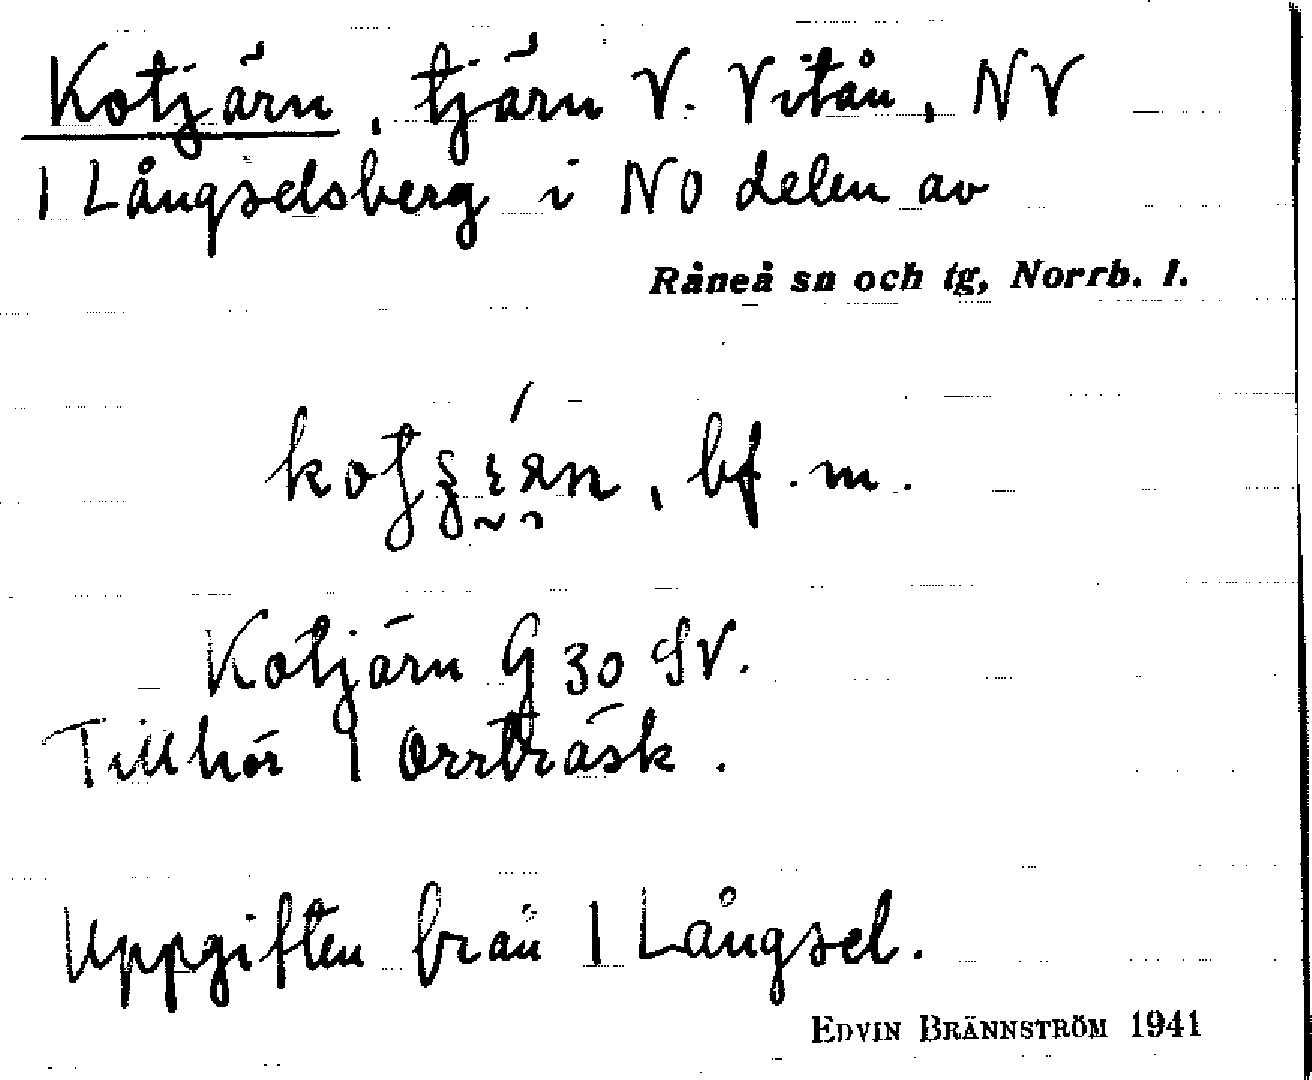 Kotjärn, tjärn V. Vitån, NV
1 Långselsberg i NO delen av
Råneå sn och tg, Norrb. l.
bf. m.
Kotjärn G 30 SV.
Tillhör 1 Orrträsk.
Uppgiften från 1 Långsel.
EDVIN BRÄNNSTRÖM 1941